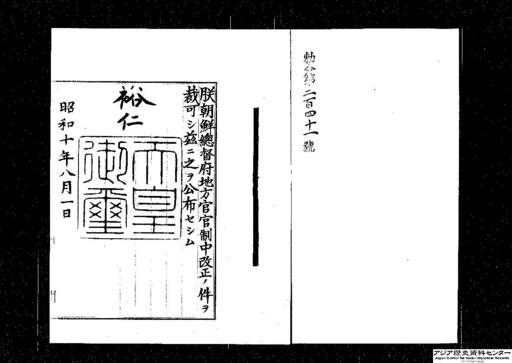 勅令第二百四十一號
朕朝鮮總督府地方官官制中改正ノ件ヲ
裁可シ茲ニ之ヲ公布セシム
裕仁
天皇御璽
昭和十年八月一日
アジア歴史資料センター
Japan Center for Asian Historical Records